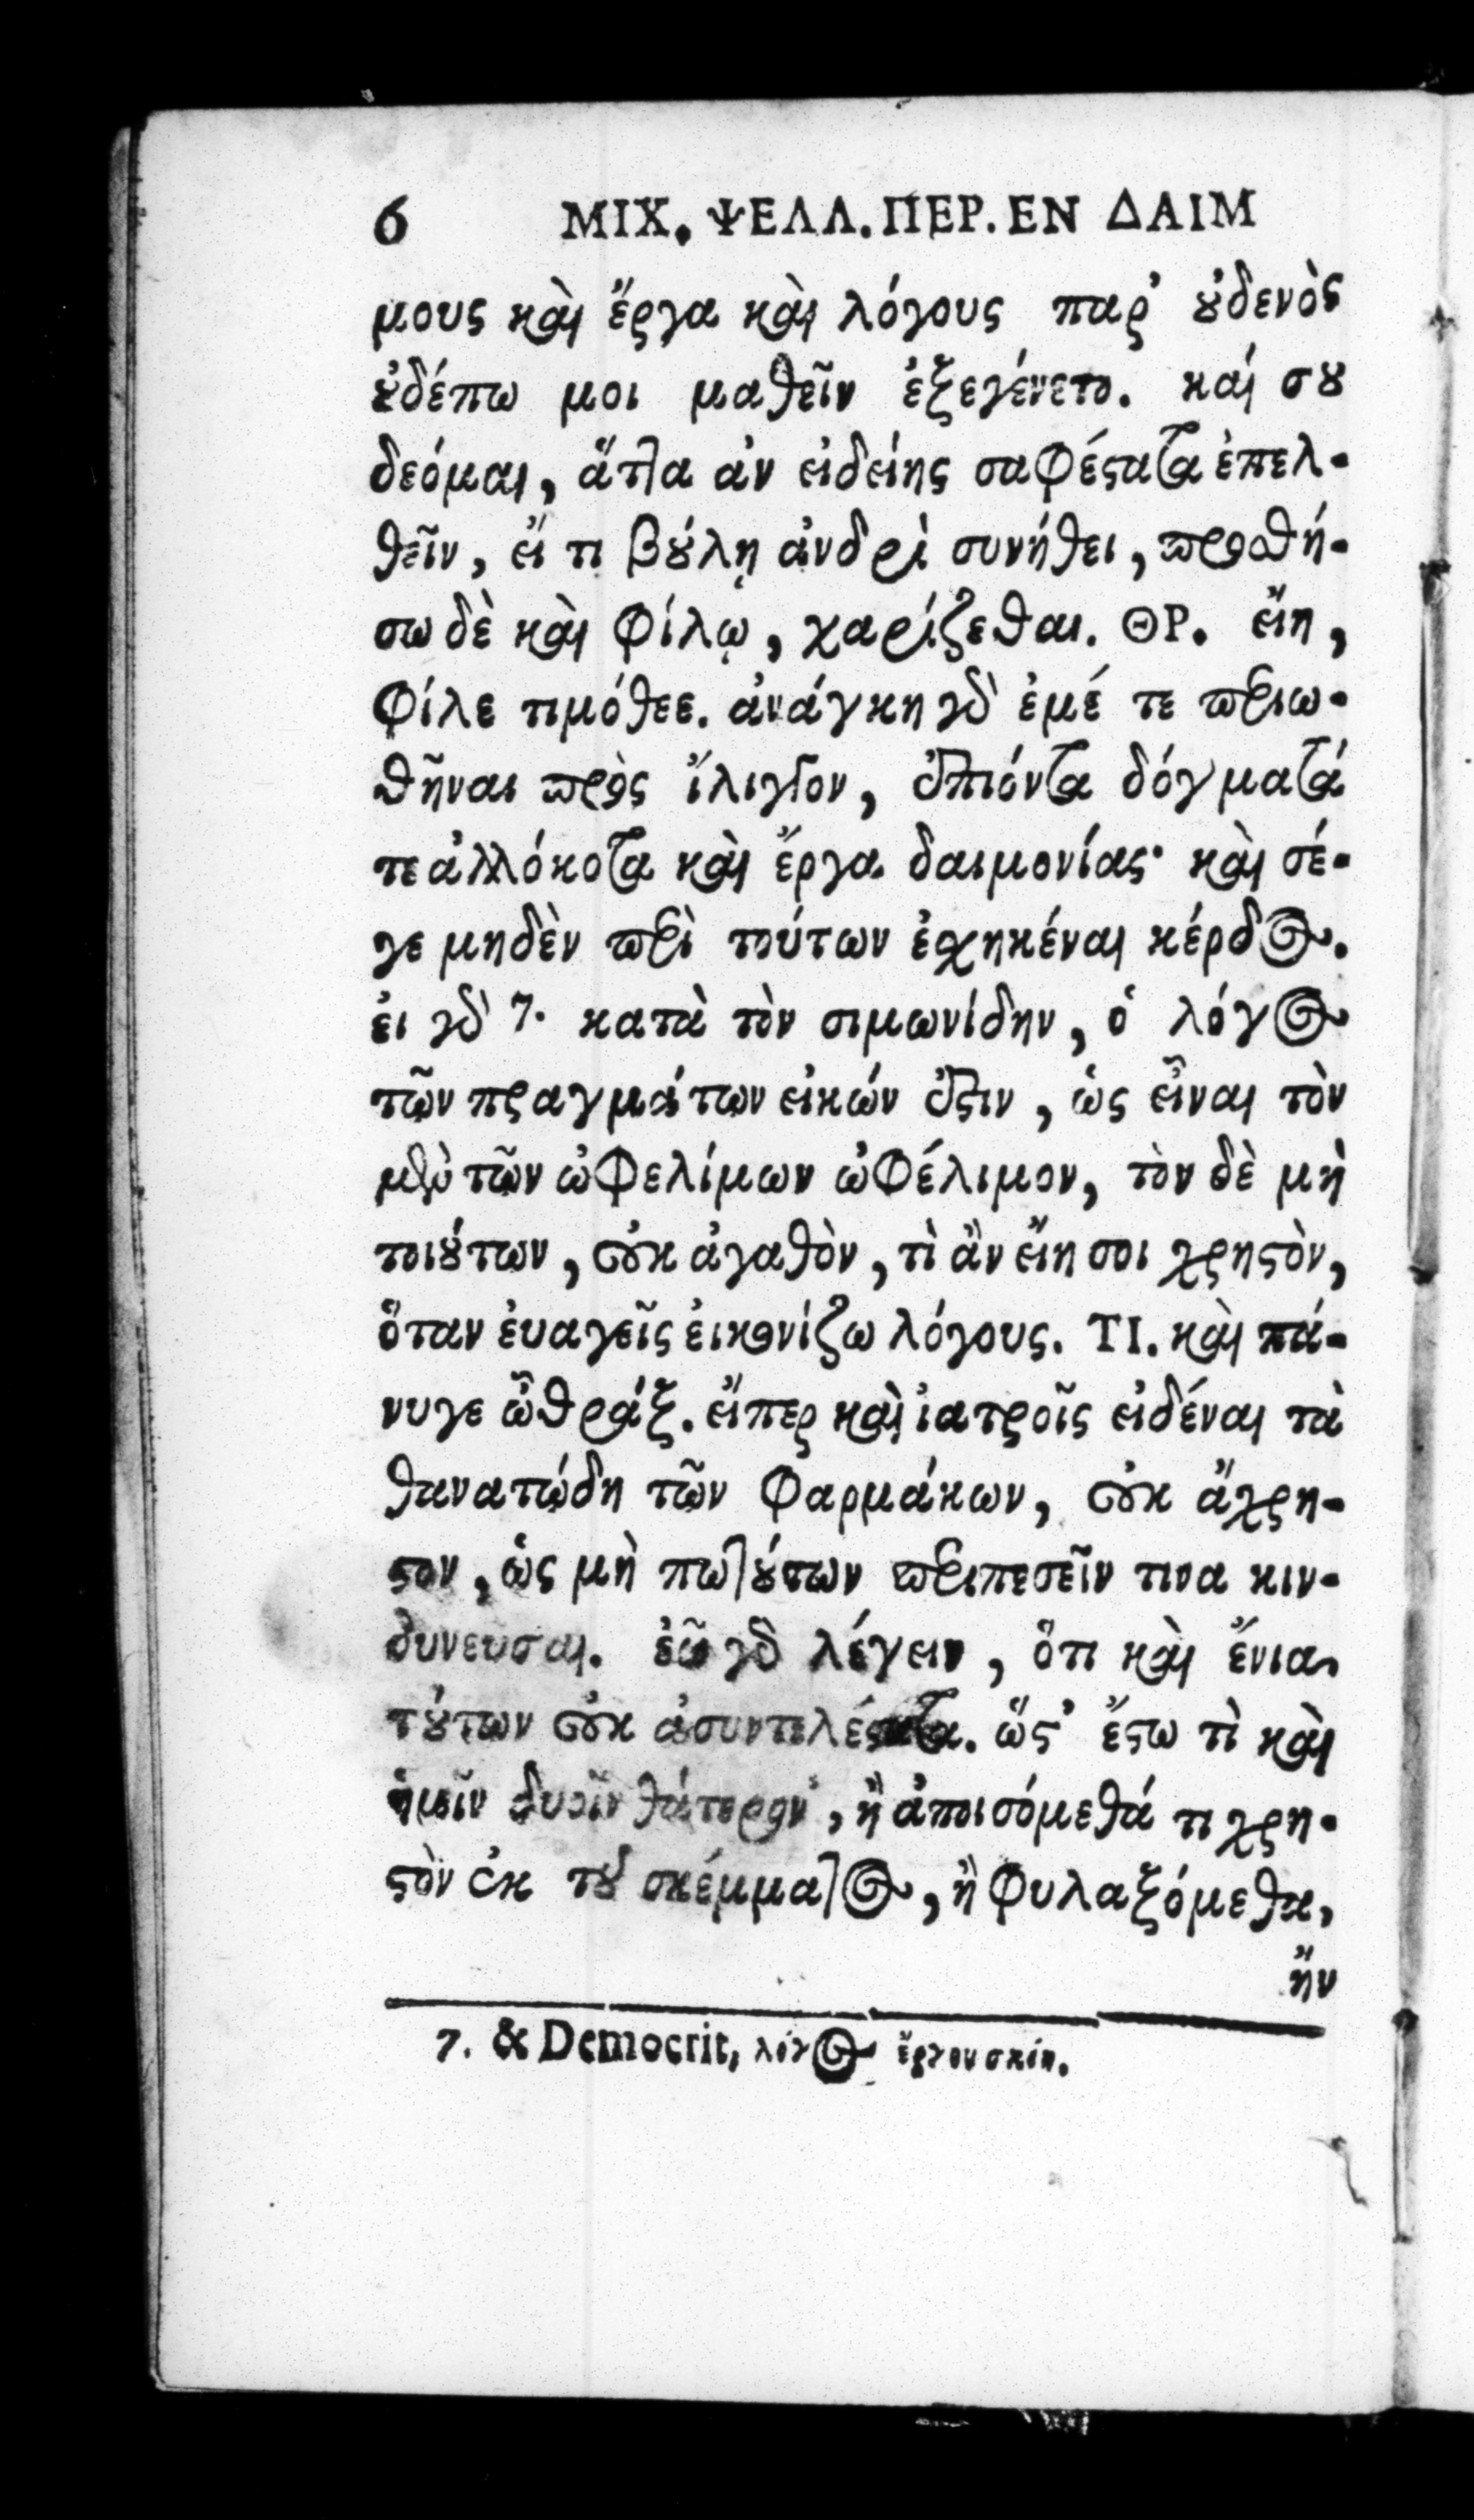 6 ΜΙΧ. ΨΕΛΛ. ΠΕΡ. ΕΝ ΔΑΙΜ
μους καὶ ἔργα καὶ λόγους παρ' ȣ̓δενὸς
ȣ̓δέπω μοι μαθεῖν ἐξεγένετο. καί σȣ
δεόμαι, ἅττα ἀν εἰδείης σαφέϛατα ἐπελ-
θεῖν, εἴ τι βȣ́λῃ ἀνδρὶ συνήθει, προσθή-
σω δὲ καὶ φίλῳ, χαρίζεσθαι. ΘΡ. εἴη,
φίλε τιμόθεε. ἀνάγκη γὸ ἐμέ τε περιω-
θῆναι πρὸς ἴλιγγον, ἐπιόντα δόγματά
τε ἀλλόκοτα καὶ ἔργα δαιμονίας· καὶ σέ-
γε μηδὲν περὶ τούτων ἐσχηκέναι κέρδος.
ἐι γὸ 7. κατὰ τὸν σιμωνίδην, ὁ λόγος
τῶν πραγμάτων εἰκών ἐϛιν, ὡς εἶναι τὸν
μὲν τῶν ὠφελίμων ὠφέλιμον, τὸν δὲ μὴ
τοιȣ́των, οὐκ ἀγαθὸν, τὶ ἂν εἴη σοι χρηϛὸν,
ὅταν ἐυαγεῖς ἐικονίζω λόγους. ΤΙ. καὶ πά-
νυγε ὦ θρᾴξ. εἴπερ καὶ ἰατροῖς εἰδέναι τὰ
θανατώδη τῶν φαρμάκων, οὐκ ἄχρη-
ϛον, ὡς μὴ πω τȣ́των περιπεσεῖν τινα κιν-
δυνευσαι. ἐῶ γὸ λέγειν, ὅτι καὶ ἔνια
τȣ́των οὐκ ἀσυντελέϛατα. ὥϛ' ἔϛω τὶ καὶ
ἡμῖν δυοῖν θάτερον, ἢ ἀποισόμεθά τι χρη-
ϛὸν ἐκ τȣ͂ σκέμματος, ἢ φυλαξόμεθα,
ἤν
7. & Democrit, λόγος ἔργου σκίη.